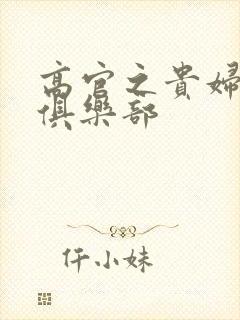 高官之貴婦
俱樂部
仟小妹